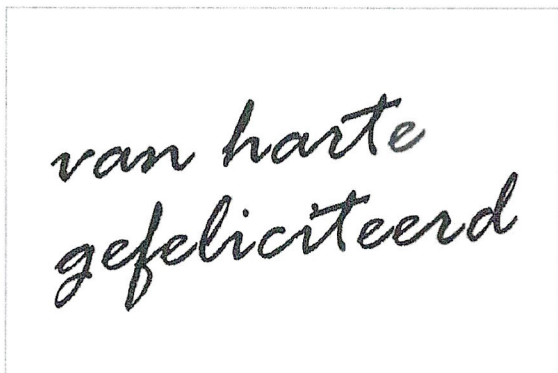 van harte
gefeliciteerd